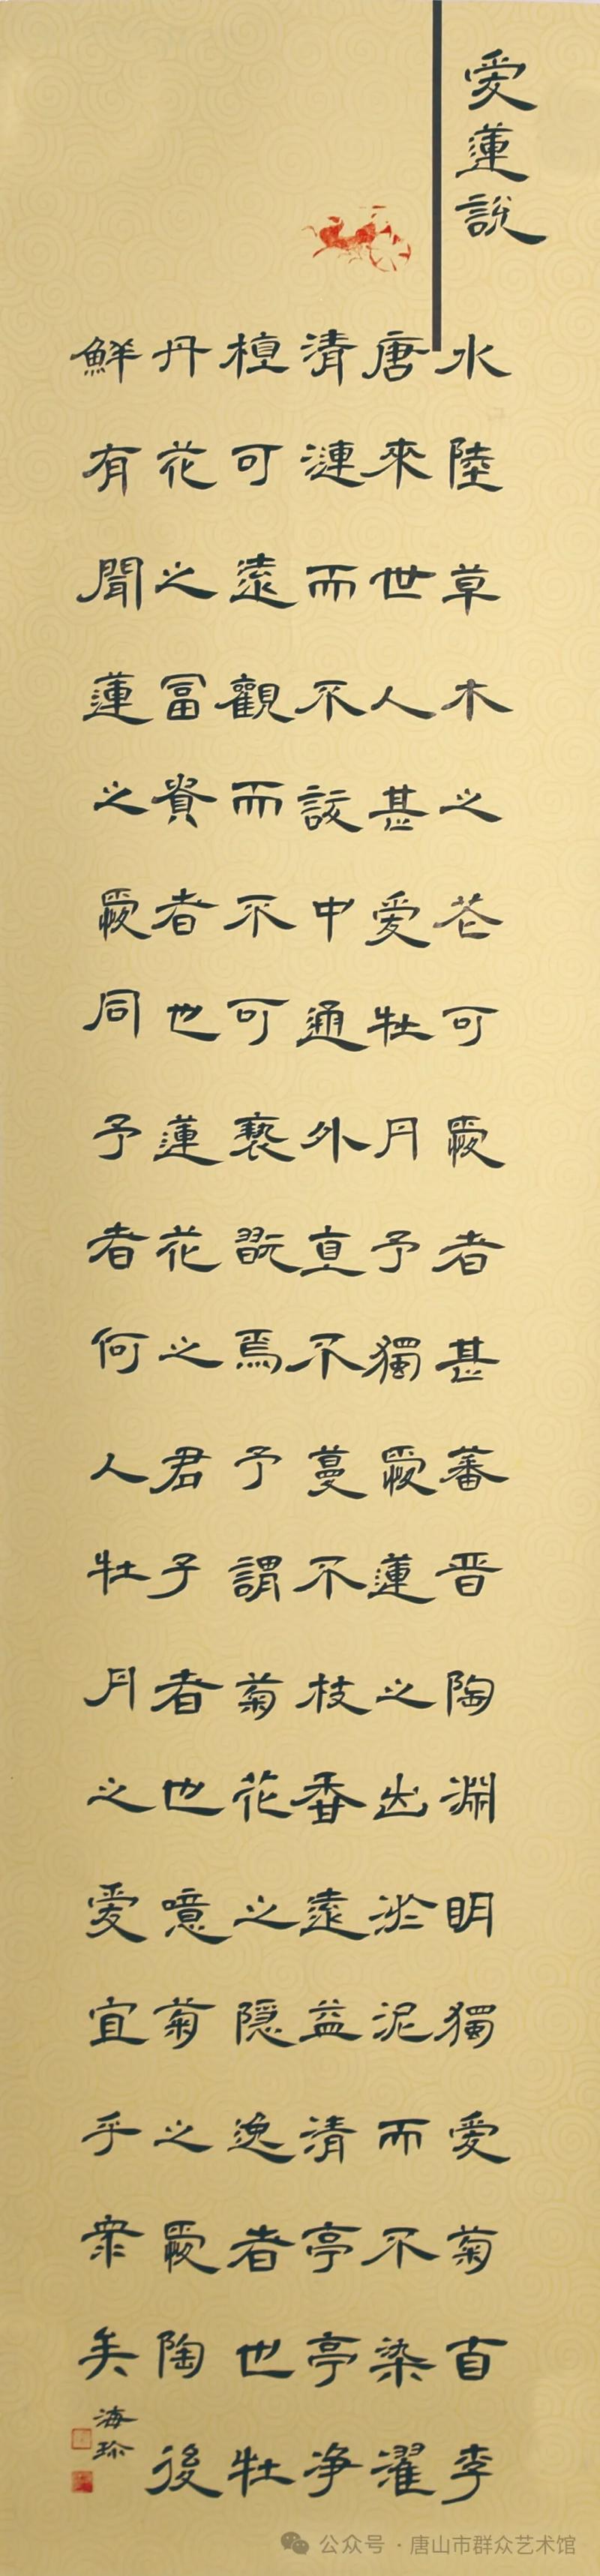 愛蓮說
水陸草木之花可愛者甚蕃晉陶淵明獨愛菊自李
唐來世人甚愛牡丹予獨愛蓮之出淤泥而不染濯
清漣而不中通外直不蔓不枝香遠益清亭亭净
植可遠觀而不可褻翫焉予謂菊花之隱逸者也牡
丹花之富貴者也蓮花之君子者也噫菊之愛陶後
鮮有聞蓮之愛同予者何人牡丹之愛宜乎衆矣
海珍
公众号·唐山市群众艺术馆